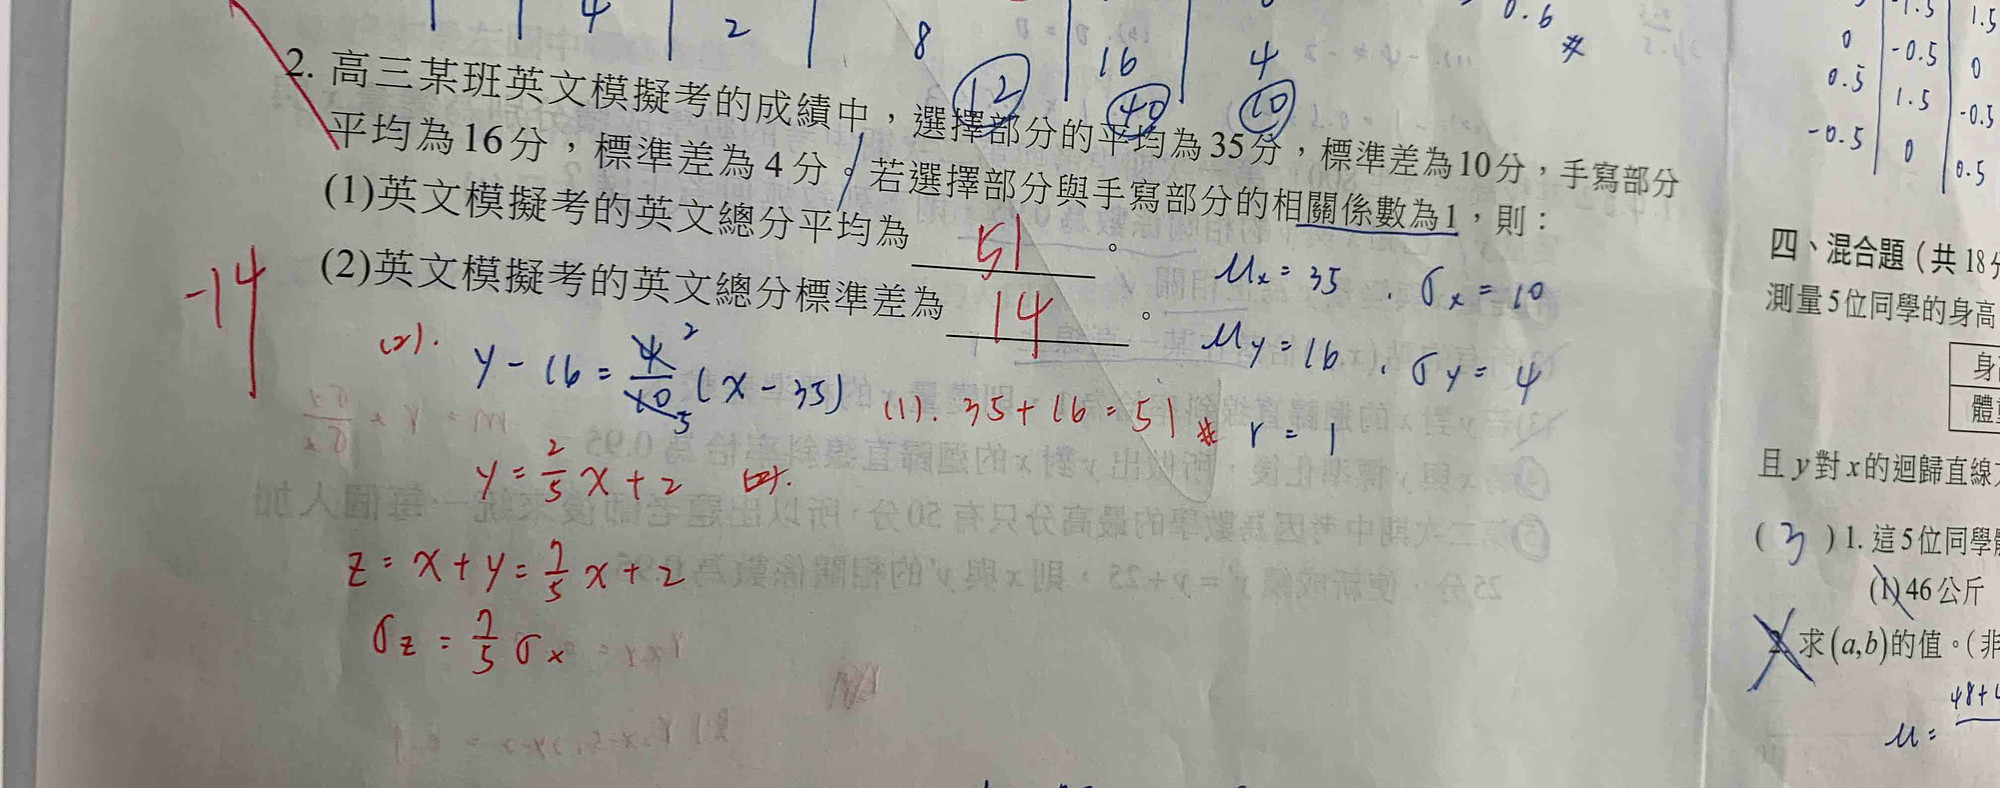 4 2 8 16 4 0.6 #
12 40 10
2. 高三某班英文模擬考的成績中，選擇部分的平均為35分，標準差為10分，手寫部分
平均為16分，標準差為4分。若選擇部分與手寫部分的相關係數為1，則：
(1)英文模擬考的英文總分平均為 51 。
(2)英文模擬考的英文總分標準差為 14 。
-14
μx = 35 , σx = 10
μy = 16 , σy = 4
r = 1
(1). 35+16=51 #
(2). y-16 = 4/10 (x-35)
2
5
y = 2/5 x + 2
z = x + y = 7/5 x + 2
σz = 7/5 σx
-1.5 1.5
0 -0.5 0
0.5 1.5 -0.5
-0.5 0 0.5
四、混合題（共18分
測量5位同學的身高
身
體
且y對x的迴歸直線
( 3 ) 1. 這5位同學
(1)46公斤
2. 求(a,b)的值。(非
48+4
μ =